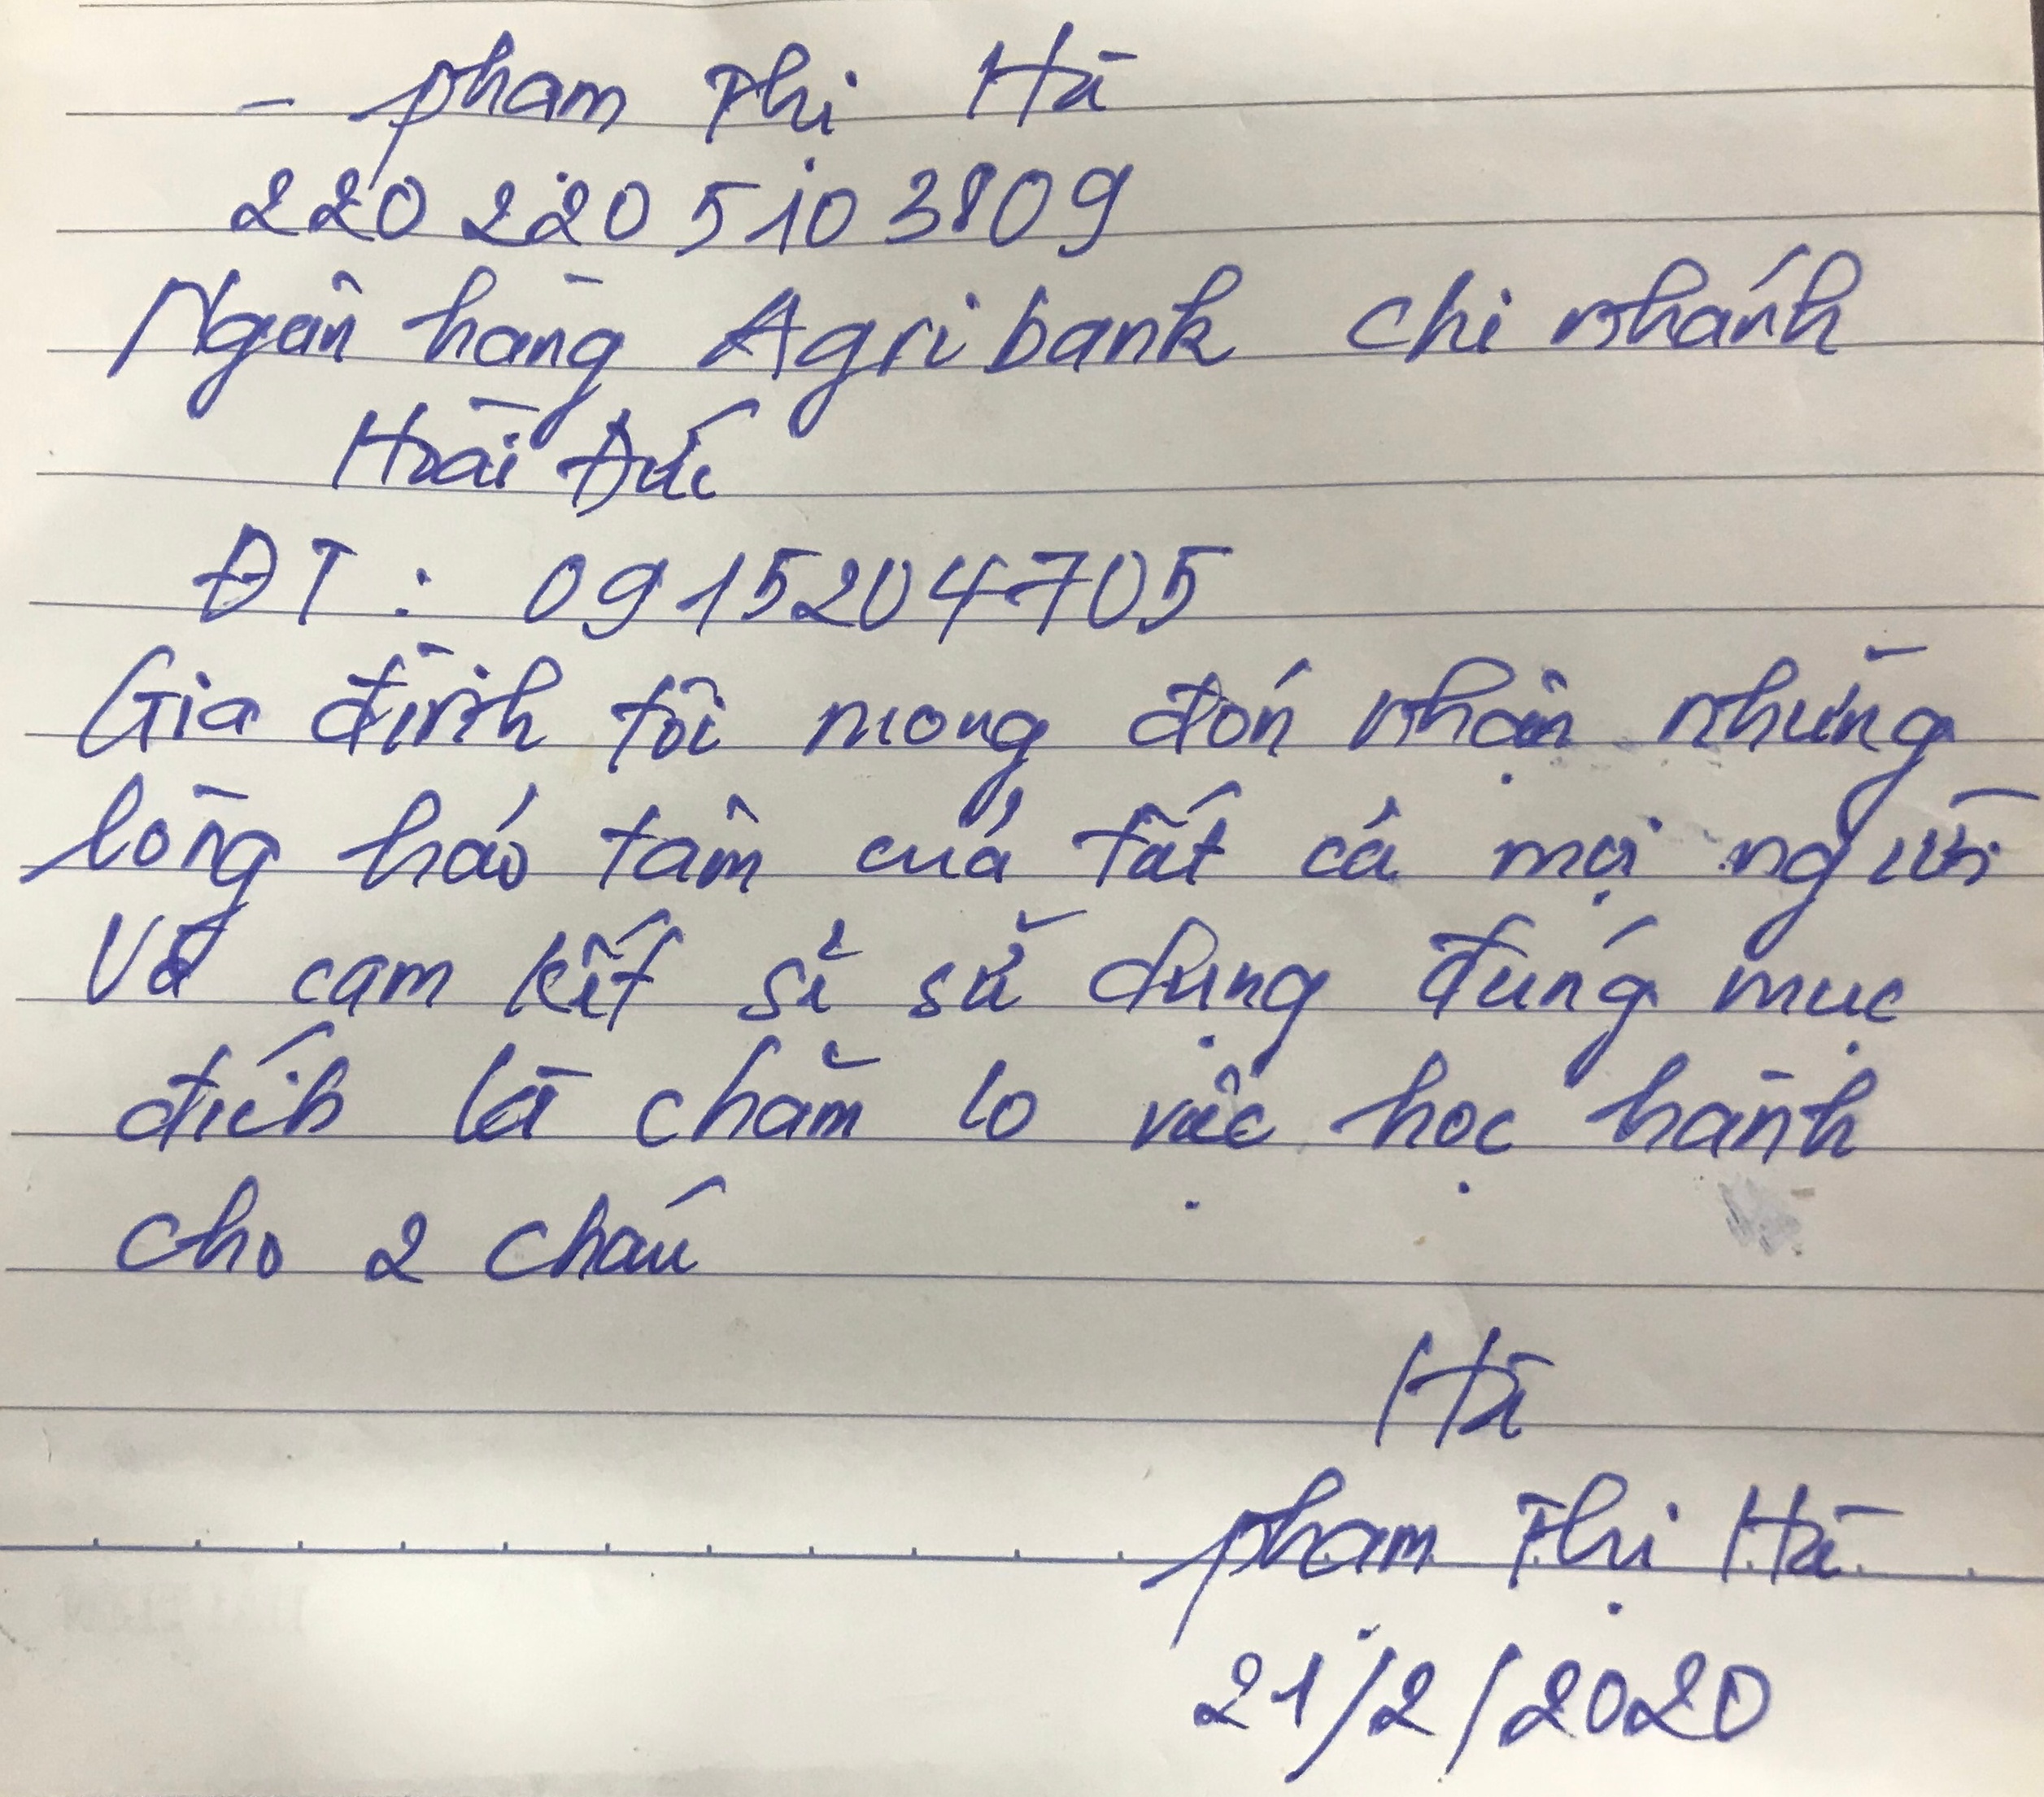 - Phạm Thị Hà
220 220 510 3809
Ngân hàng Agribank chi nhánh
Hoài Đức
ĐT : 0915204705
Gia đình tôi mong đón nhận những
lòng hảo tâm của tất cả mọi người
Và cam kết sẽ sử dụng đúng mục
đích là chăm lo việc học hành
cho 2 cháu
Hà
Phạm Thị Hà
21/2/2020